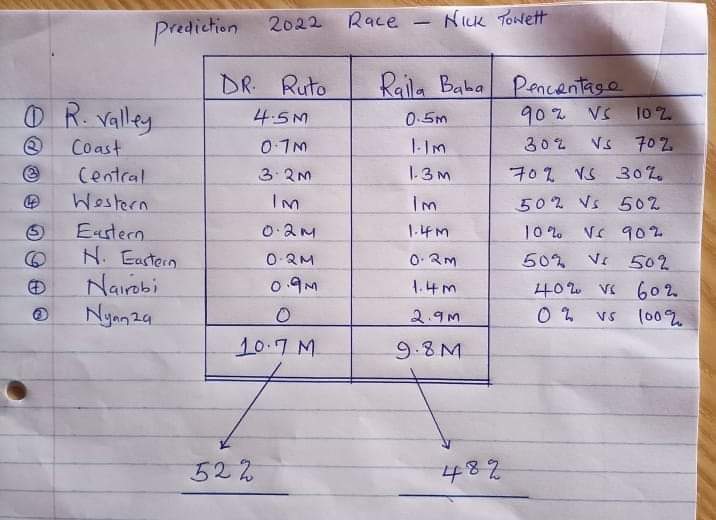 Prediction 2022 Race - Nick Towett
DR. Ruto Raila Baba Pencentage
① R. Valley 4.5M 0.5M 90% VS 10%
② Coast 0.7M 1.1M 30% VS 70%
③ Central 3.2M 1.3M 70% VS 30%
④ Western 1M 1M 50% VS 50%
⑤ Eastern 0.2M 1.4M 10% VS 90%
⑥ N. Eastern 0.2M 0.2M 50% VS 50%
⑦ Nairobi 0.9M 1.4M 40% VS 60%
⑧ Nyanza 0 2.9M 0% VS 100%
10.7M 9.8M
52% 48%